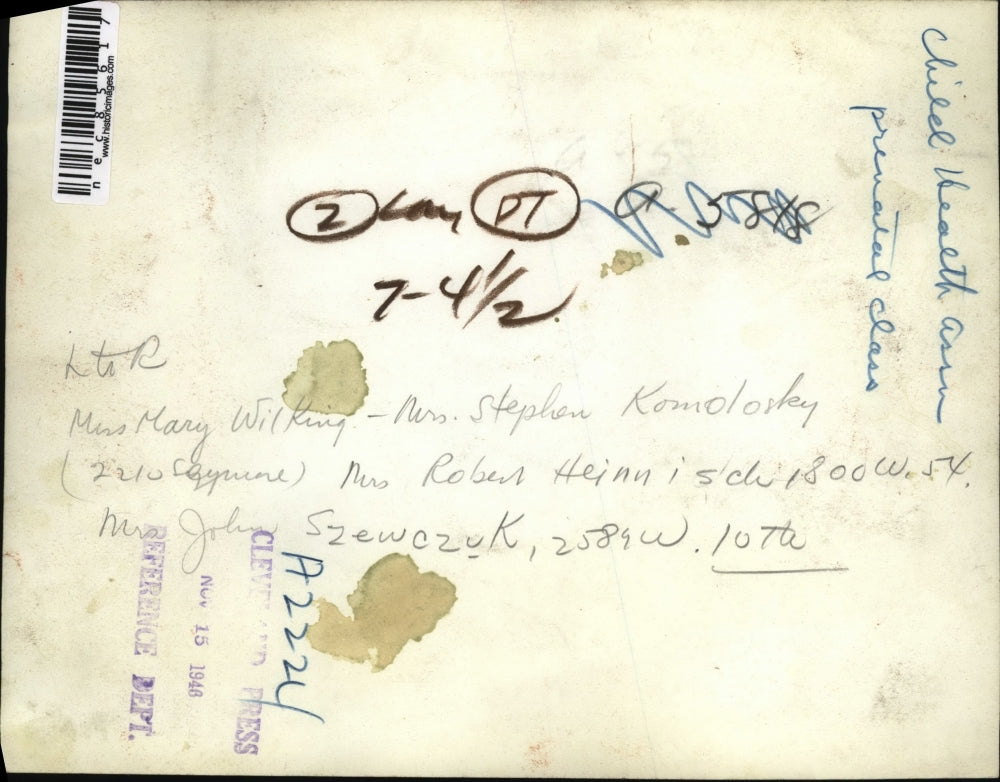 necB5617
www.historicimages.com
Child Health Assn
prenatal class
2 Col DT
7-4 1/2
L to R
Miss Mary Wilking - Mrs. Stephen Komdosky
(2210 Seymore) Mrs Robert Heinnisch, 1800 W. 54.
Mrs John Szewczuk, 2589 W. 10th
A2224
CLEVELAND PRESS
NOV 15 1946
REFERENCE DEPT.